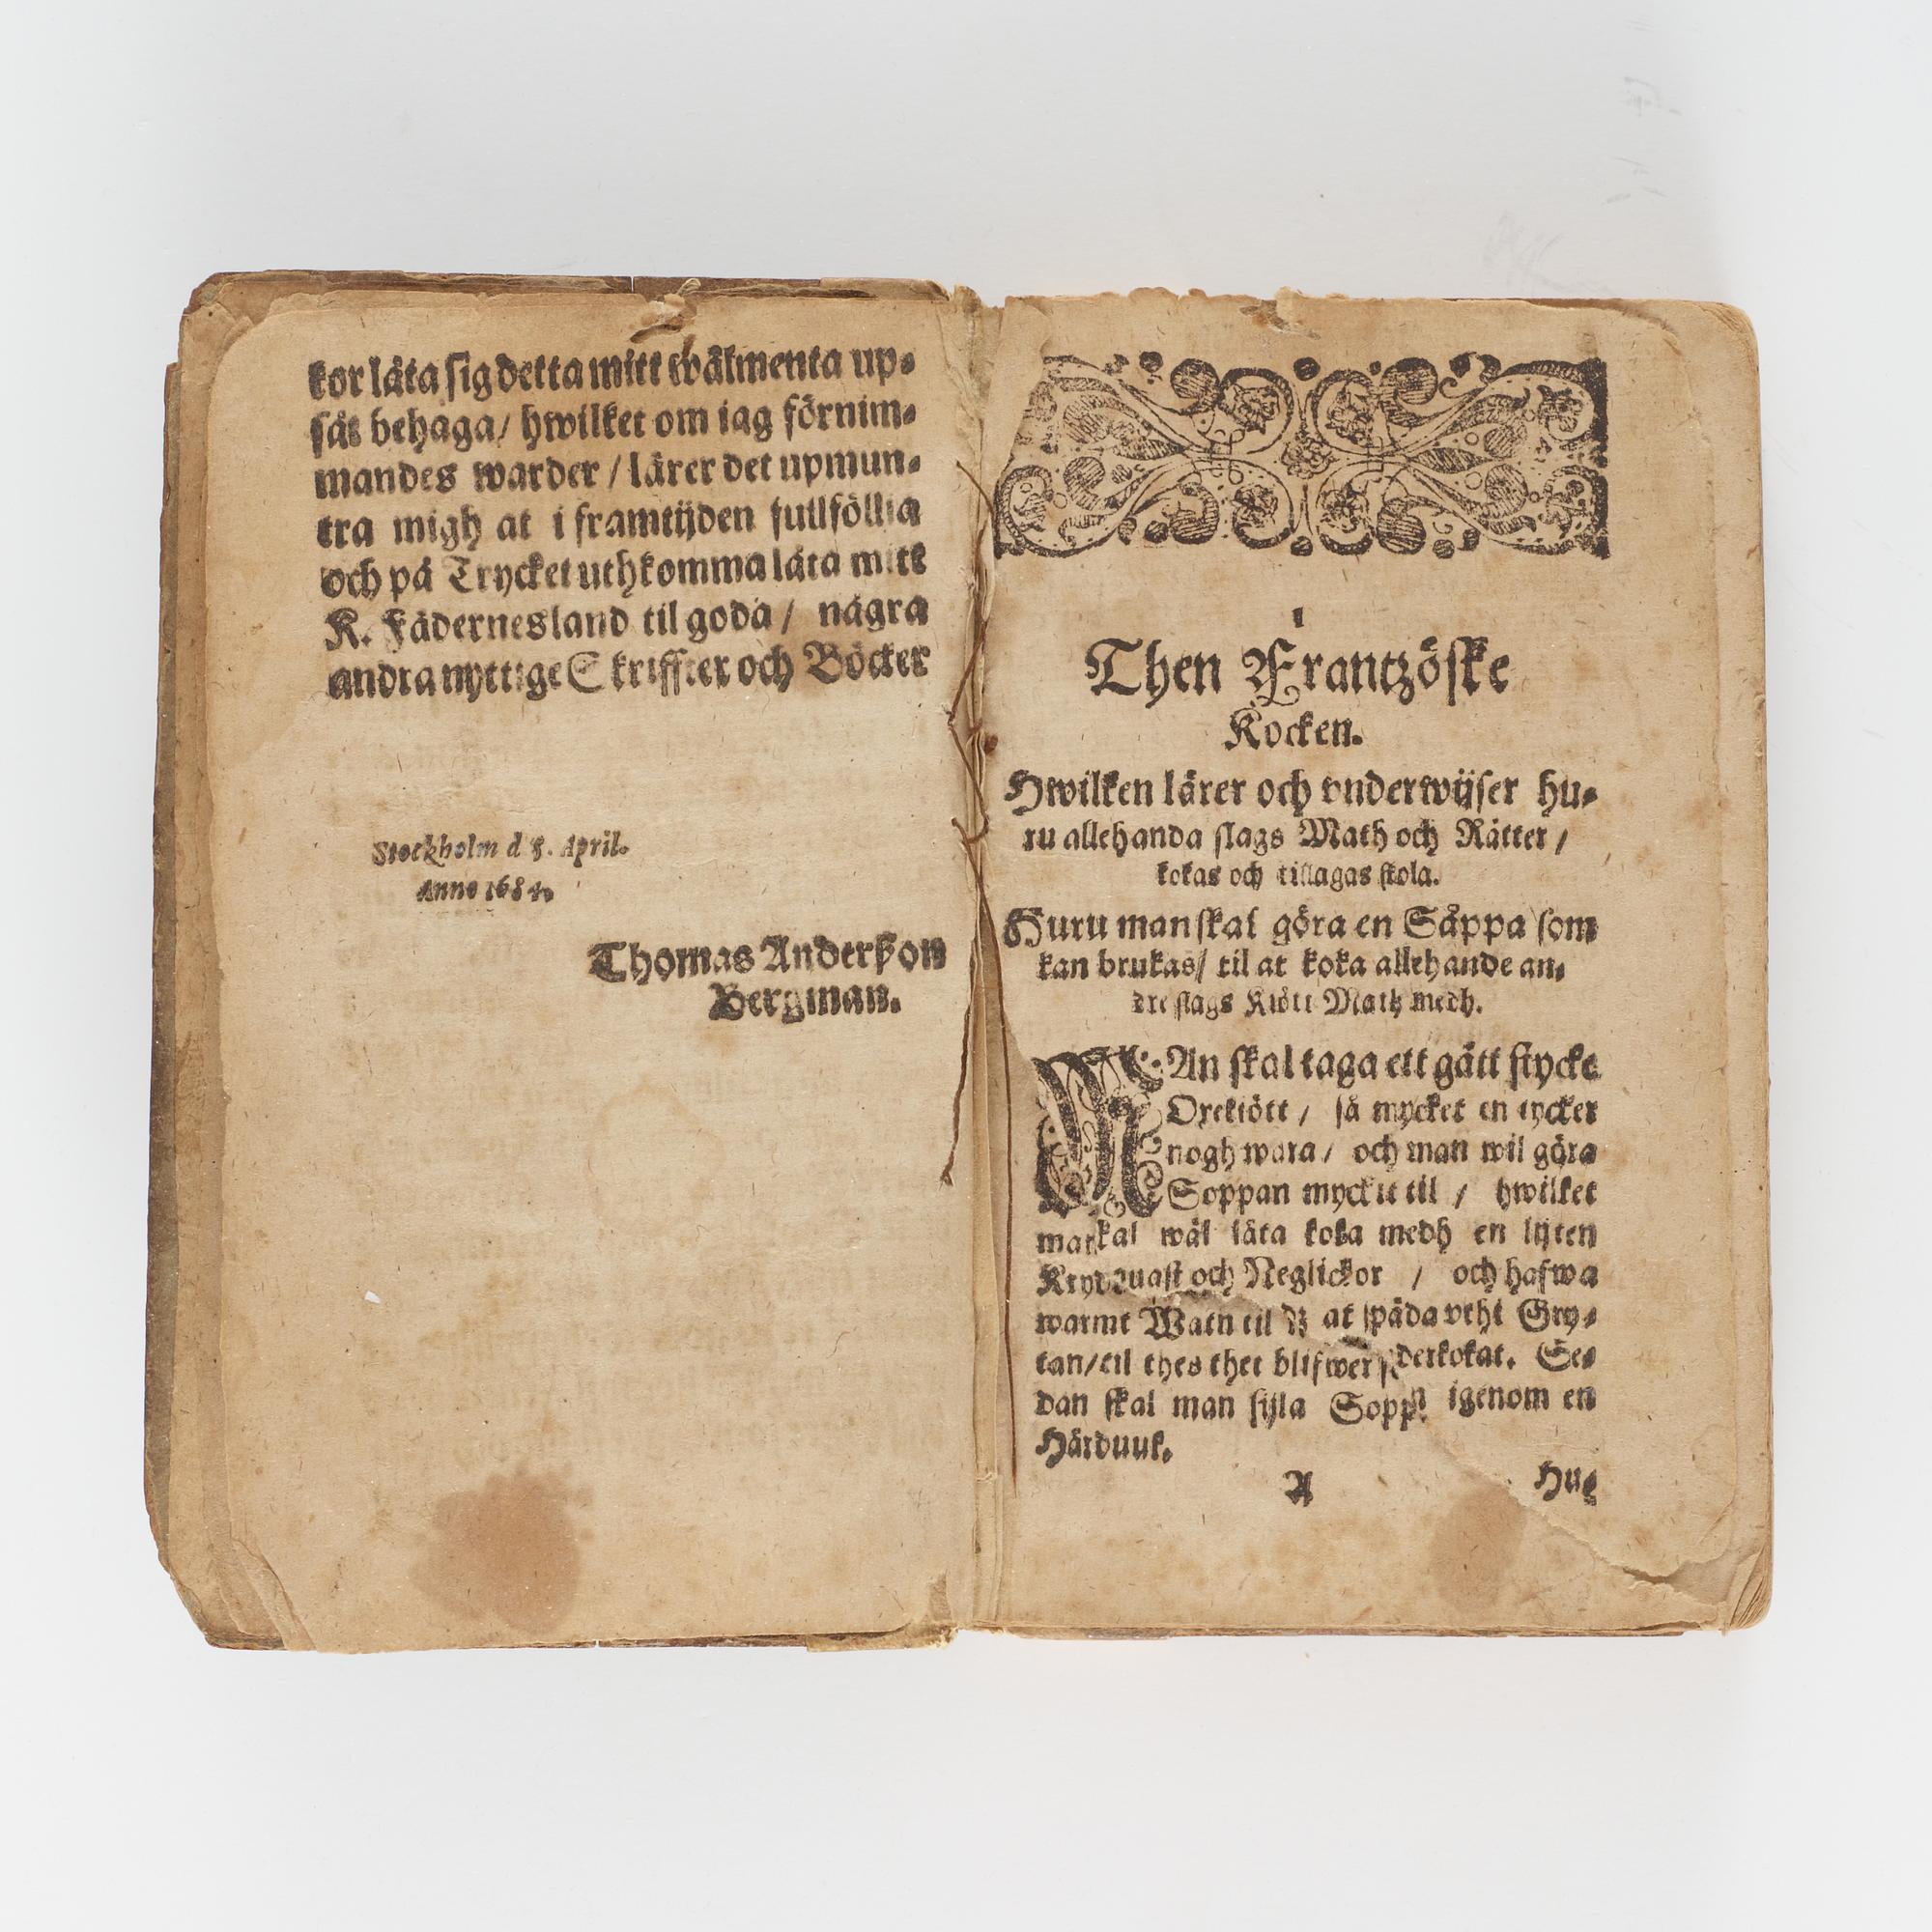 kor låta sig detta mitt wälmenta up-
såt behaga/ hwilket om iag förnim-
mandes warder / lärer det upmun-
tra migh at i framtijden fullföllia
och på Trycket uthkomma låta mitt
K. Fädernesland til goda / några
andra nyttige Skriffter och Böcker
Stockholm d 8. April.
Anno 1684.
Thomas Anderßon
Bergman.
1
Then Frantzöske
Kocken.
Hwilken lärer och vnderwijser hu-
ru allehanda slags Math och Rätter /
kokas och tillagas skola.
Huru man skal göra en Såppa som
kan brukas/ til at koka allehande an-
dre slags Kiött Math medh.
MAn skal taga ett gått stycke
Oxekiött / så mycket en tycker
nogh wara / och man wil göra
Soppan myckit til / hwilket
man skal wäl låta koka medh en lijten
Krydquast och Neglickor / och hafwa
warmt Watn til at späda vthi Gry-
tan/til thes thet blifwer sönderkokat. Se-
dan skal man sijla Soppan igenom en
Hårduuk.
A Hu-